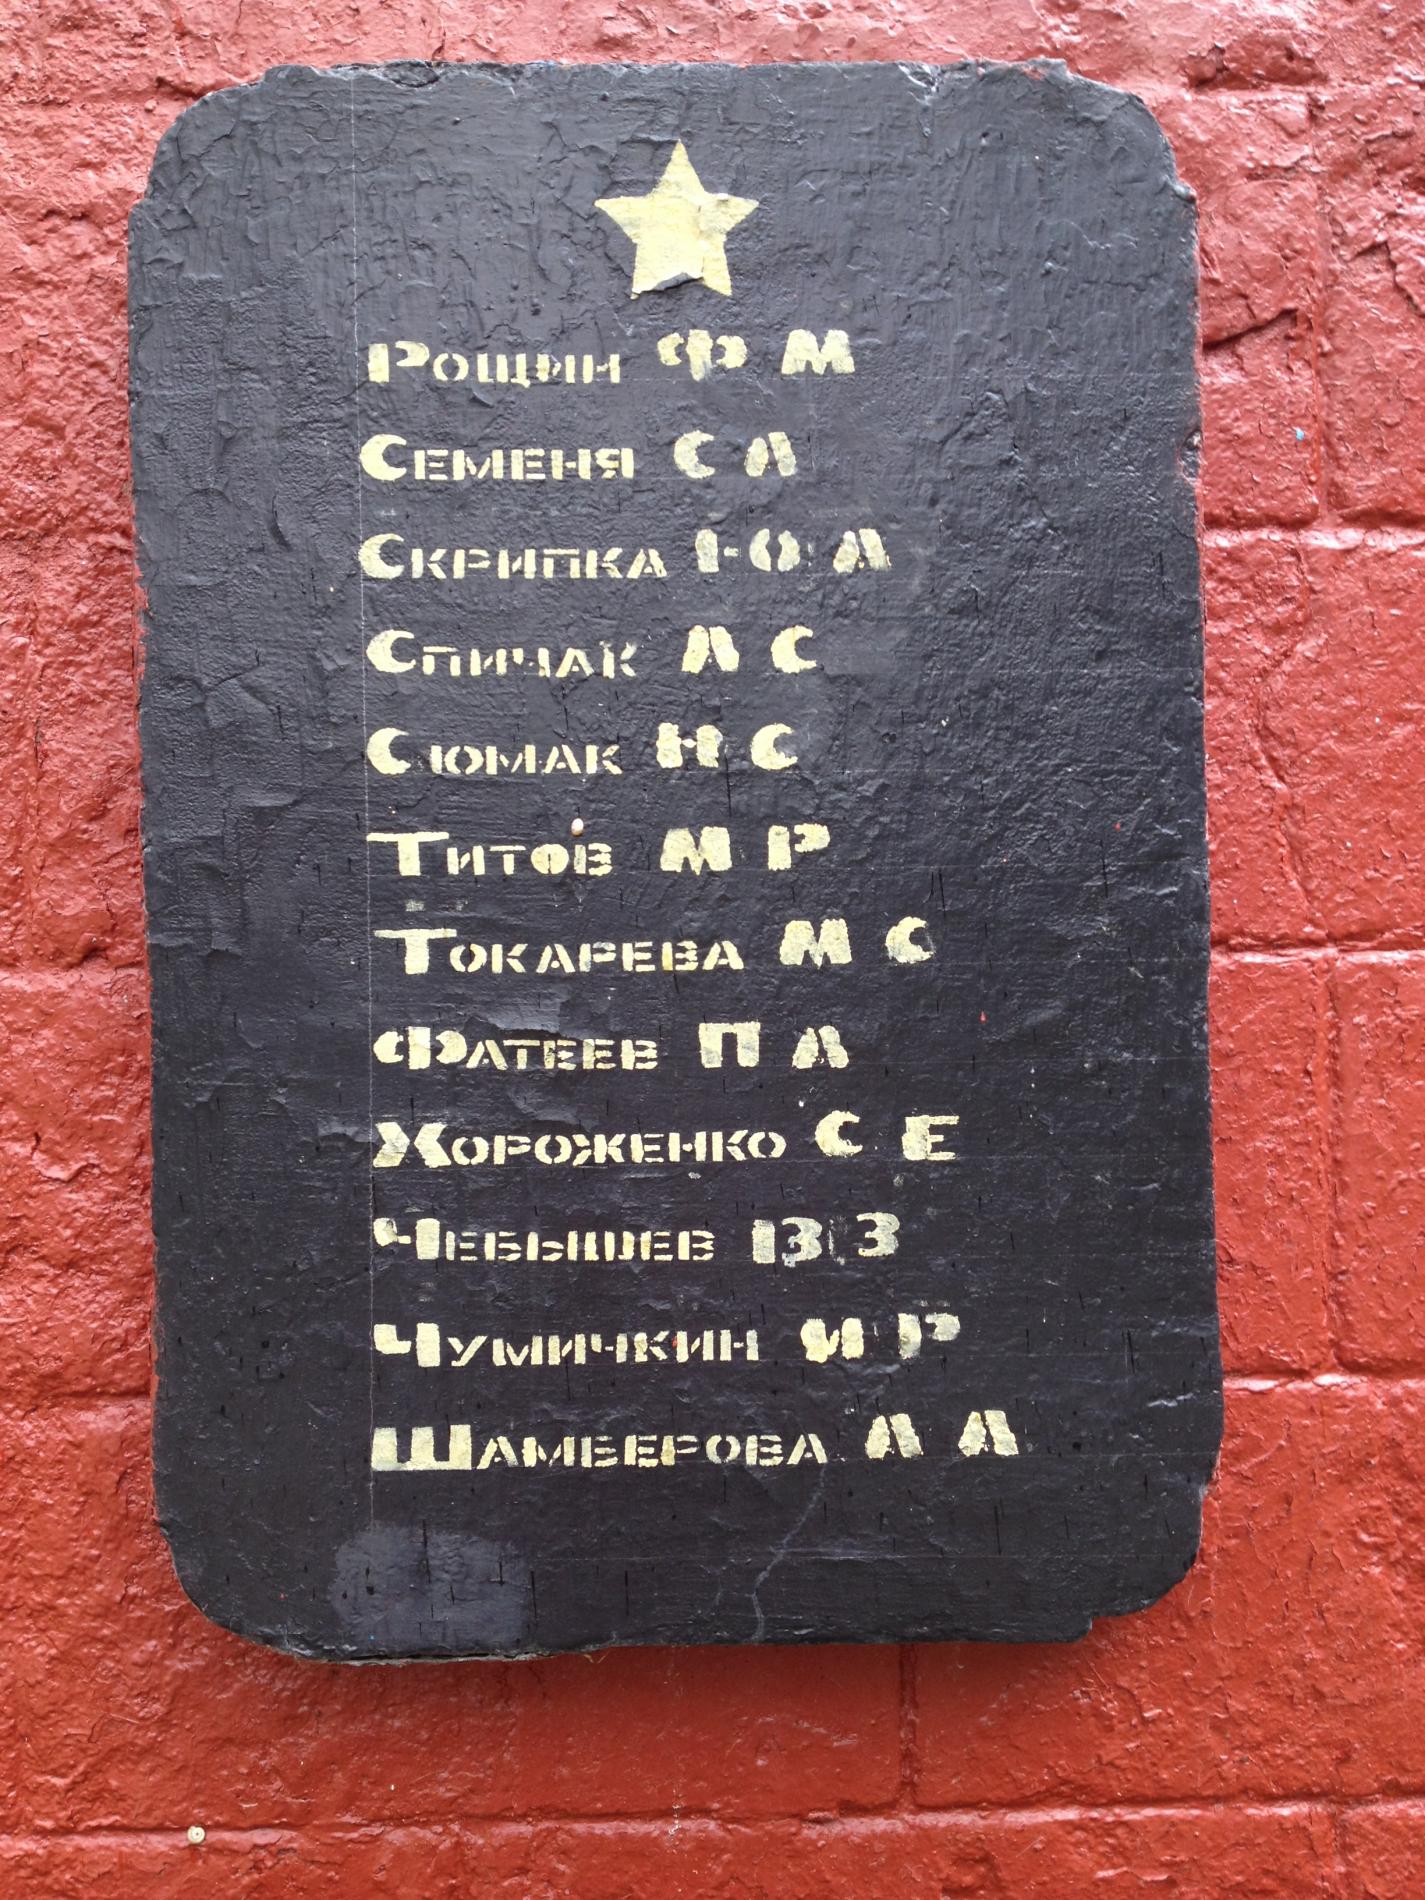 Рощин Ф М
Семеня С А
Скрипка Ю А
Спичак А С
Сюмак Н С
Титов М Р
Токарева М С
Фатеев П А
Хороженко С Е
Чебышев В З
Чумичкин И Р
Шамберова А А